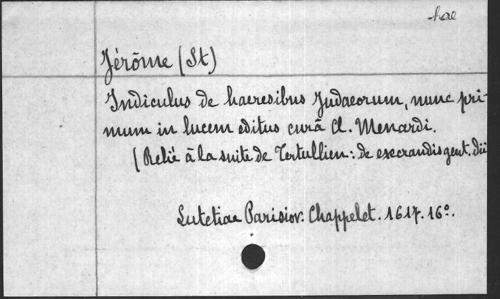 hae
Jérôme (St)
Indiculus de haeresibus Judaeorum, nunc pri-
mum in lucem editus curâ Cl. Menardi.
(Relié à la suite de Tertullien: de execrandis gent. dii
Lutetiae Parisior. Chappelet. 1617. 16º.